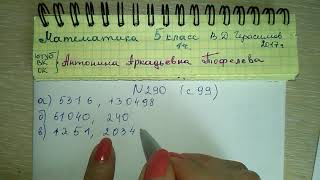 Математика 5 класс В.Д. Герасимов
1ч. 2017г
ЮТУБ
ВК
ОК
Антонина Аркадьевна Тюфелева
N290 (с 99)
а) 5316, 130498
б) 51040, 240
в) 1251, 2034